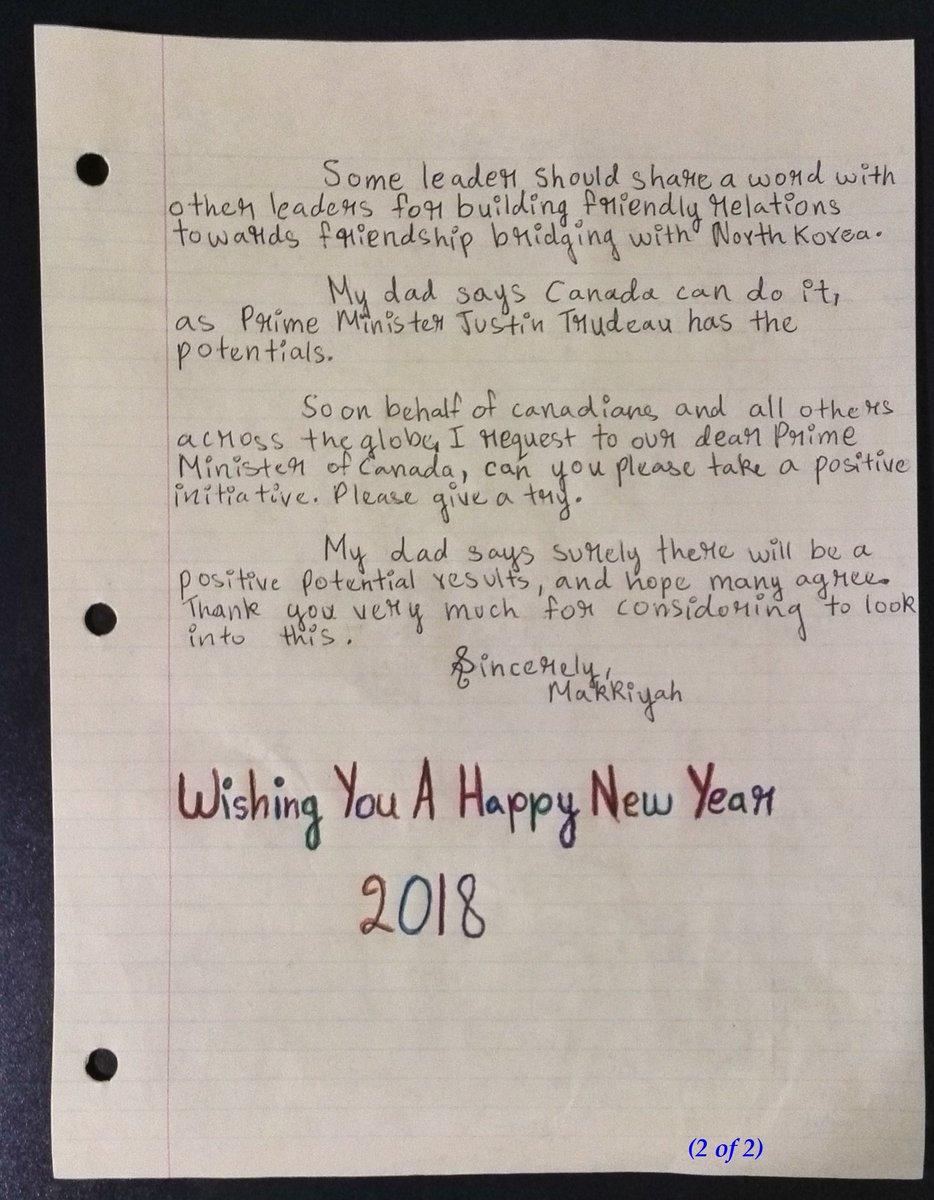 Some leader should share a word with
other leaders for building friendly relations
towards friendship bridging with North Korea.
My dad says Canada can do it,
as Prime Minister Justin Trudeau has the
potentials.
So on behalf of canadians, and all others
across the globe, I request to our dear Prime
Minister of Canada, can you please take a positive
initiative. Please give a try.
My dad says surely there will be a
positive potential results, and hope many agree.
Thank you very much for considoring to look
into this.
Sincerely,
Makkiyah
Wishing You A Happy New Year
2018
(2 of 2)